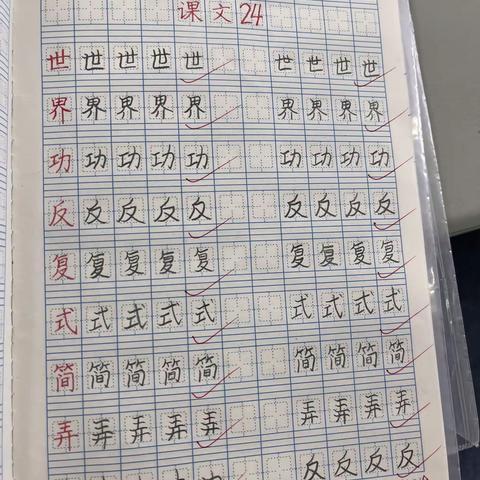 课文24
世世世世世 世世世世
界界界界界 界界界界
功功功功功 功功功功
反反反反反 反反反反
复复复复复 复复复复
式式式式式 式式式式
简简简简简 简简简简
弄弄弄弄弄 弄弄弄弄
反反反反